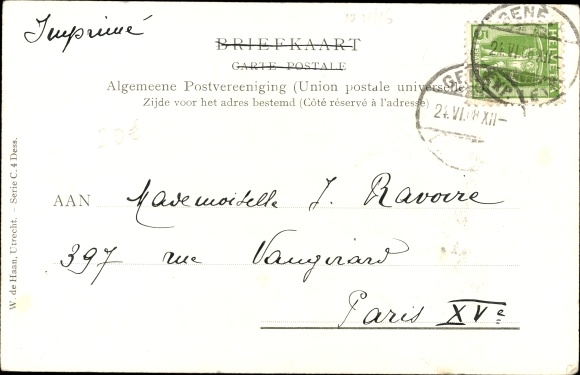 Imprimé
BRIEFKAART
CARTE POSTALE
Algemeene Postvereeniging (Union postale universelle)
Zijde voor het adres bestemd (Côté réservé à l'adresse)
GENÈ
24.VI.08 XII–
HELV
5
AAN Mademoiselle J. Ravoire
397 rue Vaugirard
Paris XVe
W. de Haan, Utrecht. Serie C. 4 Dess.